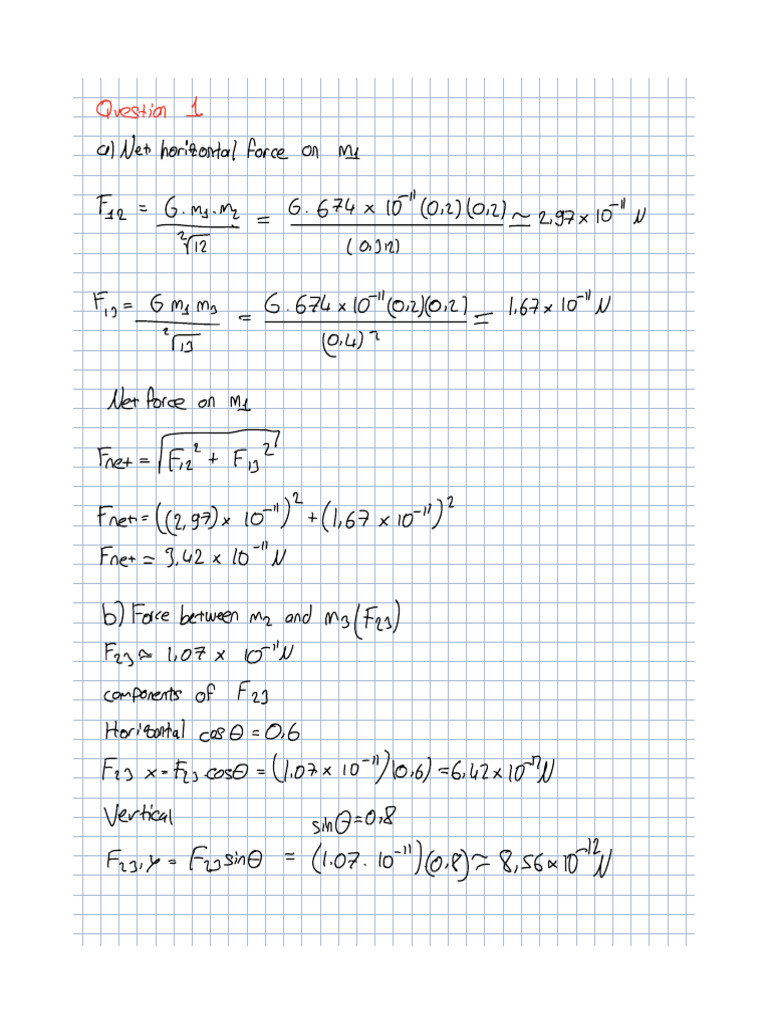 Question 1
a) Net horizontal force on m1
F12 = G. m1. m2 / ²√12 = 6.674 × 10^-11 (0,2)(0,2) / (0,32) ≃ 2,97 × 10^-11 N
F13 = G m1 m3 / ²√13 = 6.674 × 10^-11 (0,2)(0,2) / (0,4)² = 1,67 × 10^-11 N
Net force on m1
Fnet = √(F12² + F13²)
Fnet = ((2,97) × 10^-11)² + (1,67 × 10^-11)²
Fnet = 3,42 × 10^-11 N
b) Force between m2 and m3 (F23)
F23 ≃ 1,07 × 10^-11 N
components of F23
Horizontal cosθ = 0,6
F23 x = F23 cosθ = (1,07 × 10^-11)(0,6) = 6,42 × 10^-12 N
Vertical sinθ = 0,8
F23,y = F23 sinθ = (1.07. 10^-11)(0,8) ≃ 8,56 × 10^-12 N